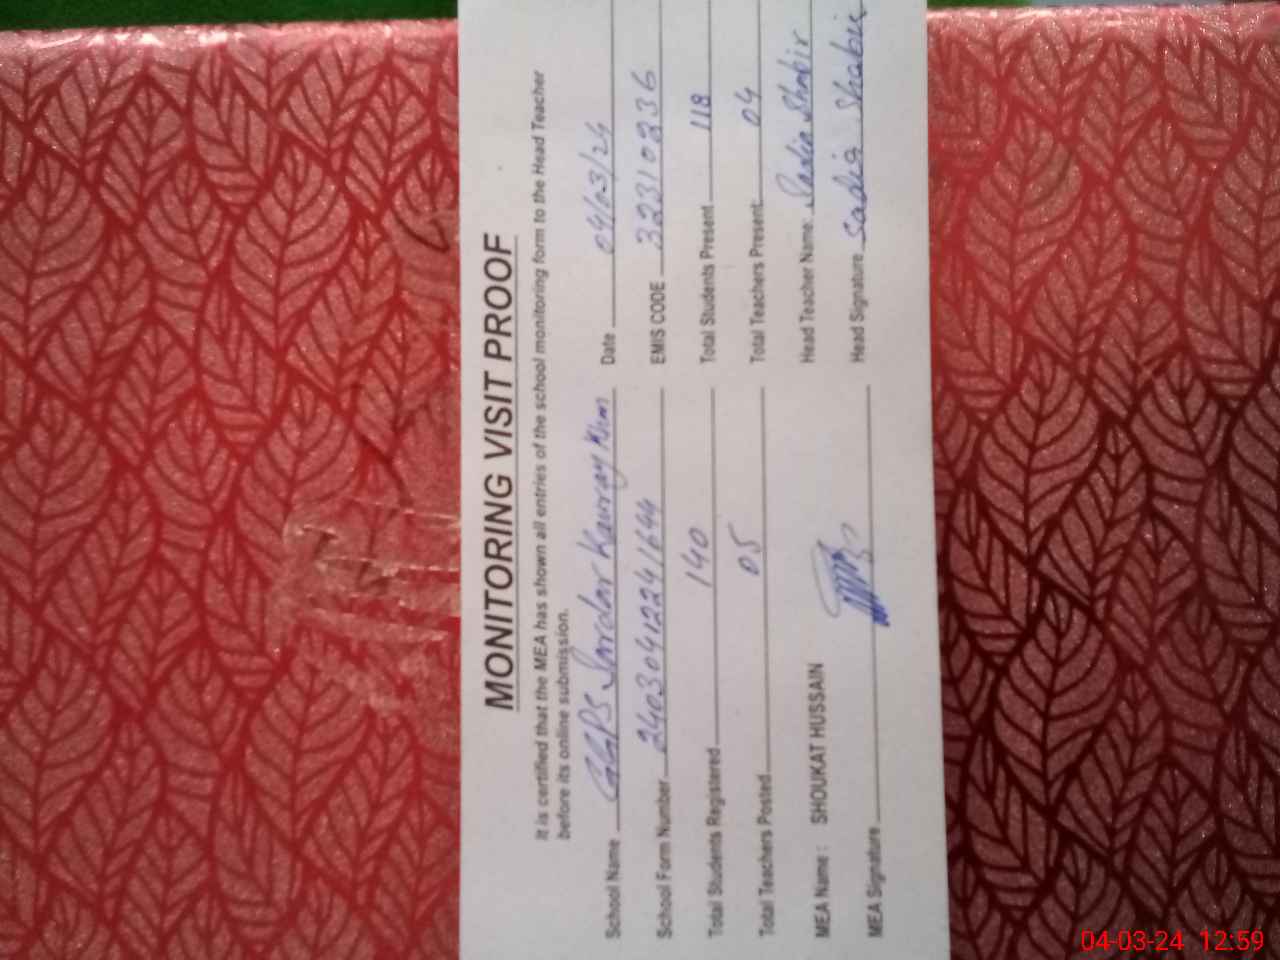 MONITORING VISIT PROOF
It is certified that the MEA has shown all entries of the school monitoring form to the Head Teacher
before its online submission.
School Name GGPS Sardar Khan Date 04/03/24
School Form Number 24030412241644 EMIS CODE 32310236
Total Students Registered 140 Total Students Present 118
Total Teachers Posted 05 Total Teachers Present 04
MEA Name : SHOUKAT HUSSAIN Head Teacher Name Sadia Shabir
MEA Signature Head Signature Sadia Shabir
04-03-24 12:59